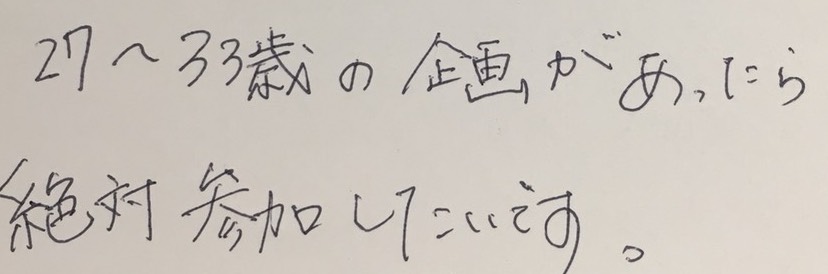 27〜33歳の企画があったら
絶対参加したいです。